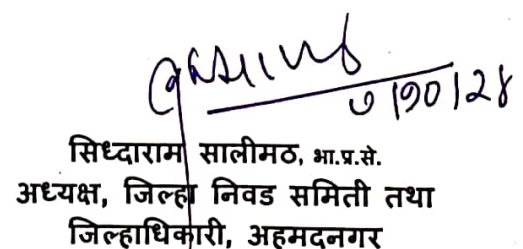 ७/१०/२४
सिध्दाराम सालीमठ, भा.प्र.से.
अध्यक्ष, जिल्हा निवड समिती तथा
जिल्हाधिकारी, अहमदनगर